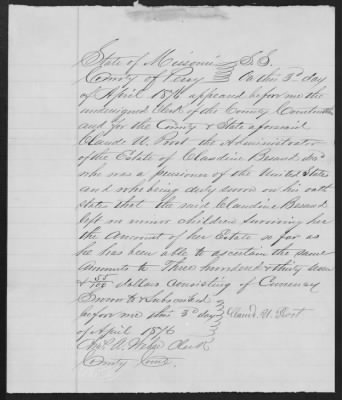 State of Missouri } S.S.
County of Perry } On this 3d day
of April 1876 appeared before me the
undersigned Clerk of the County Court within
and for the County & State aforesaid
Claude U. Prost the Administrator
of the Estate of Claudine Besand decd
who was a pensioner of the United States
and who being duly sworn on his oath
states that the said Claudine Besand
left no minor children surviving her
the amount of her Estate so far as
he has been able to ascertain the same
amounts to Three hundred & thirty seven
& 55/100 dollars consisting of Currency
Sworn to & Subscribed
before me this 3d day } Claud. U. Prost
of April 1876
Chs. A. Clerk
County Court